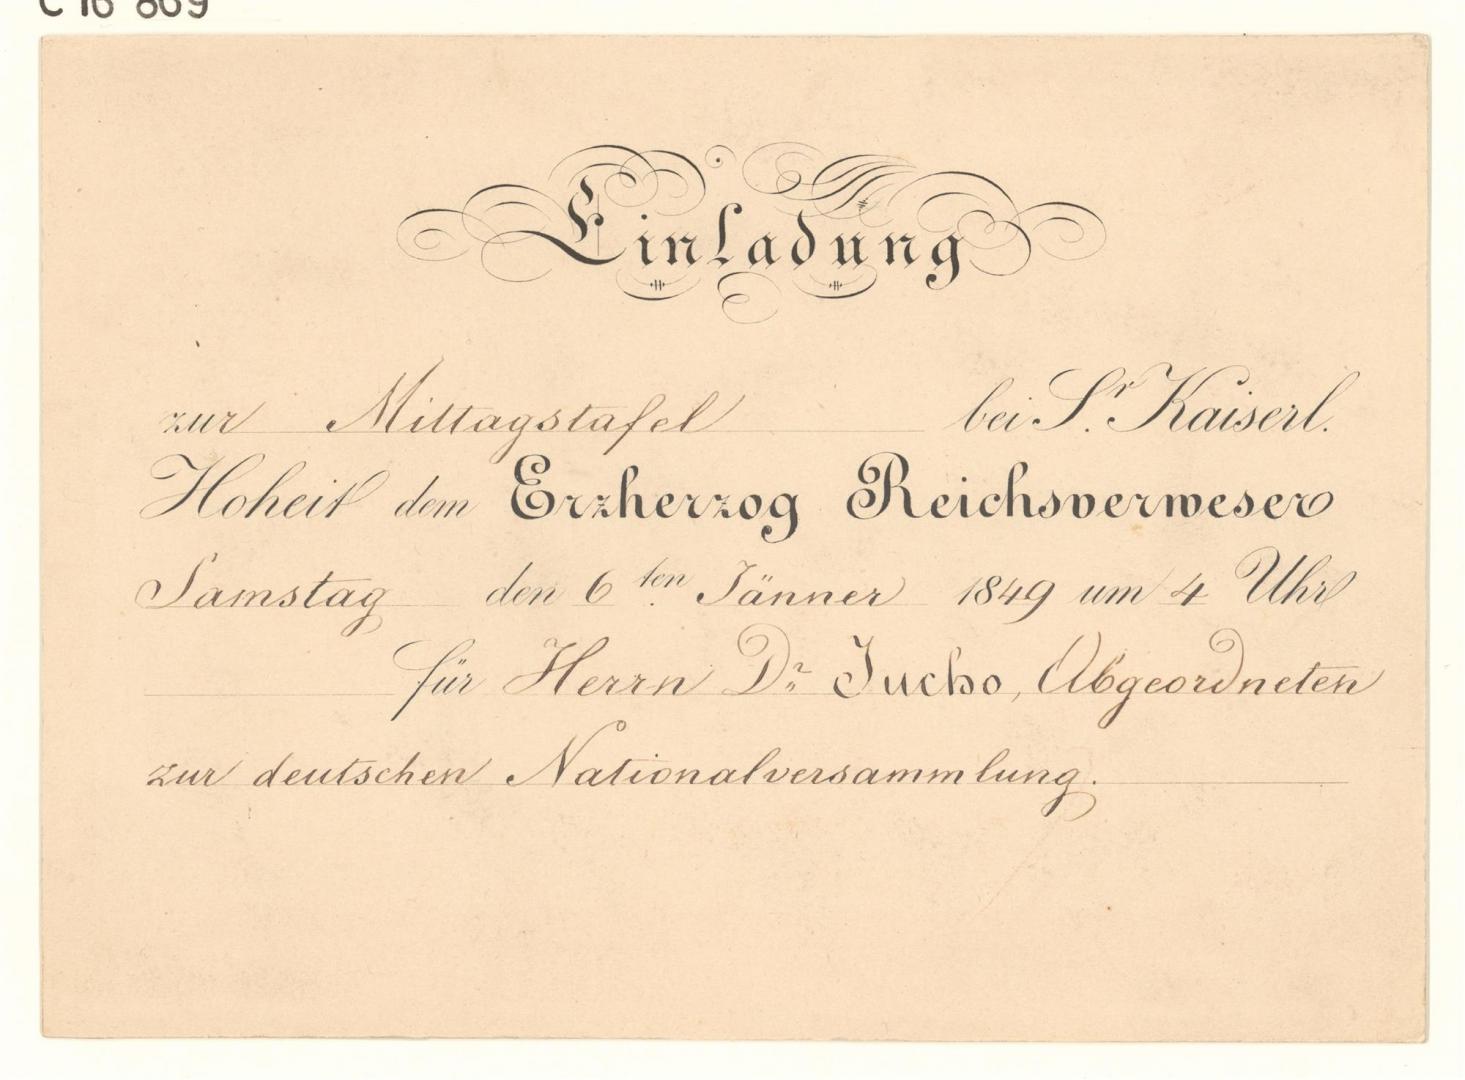 C 16 869
Einladung
zur Mittagstafel bei Sr. Kaiserl.
Hoheit dem Erzherzog Reichsverweser
Samstag den 6ten Jänner 1849 um 4 Uhr
für Herrn Dr. Jucho, Abgeordneten
zur deutschen Nationalversammlung.